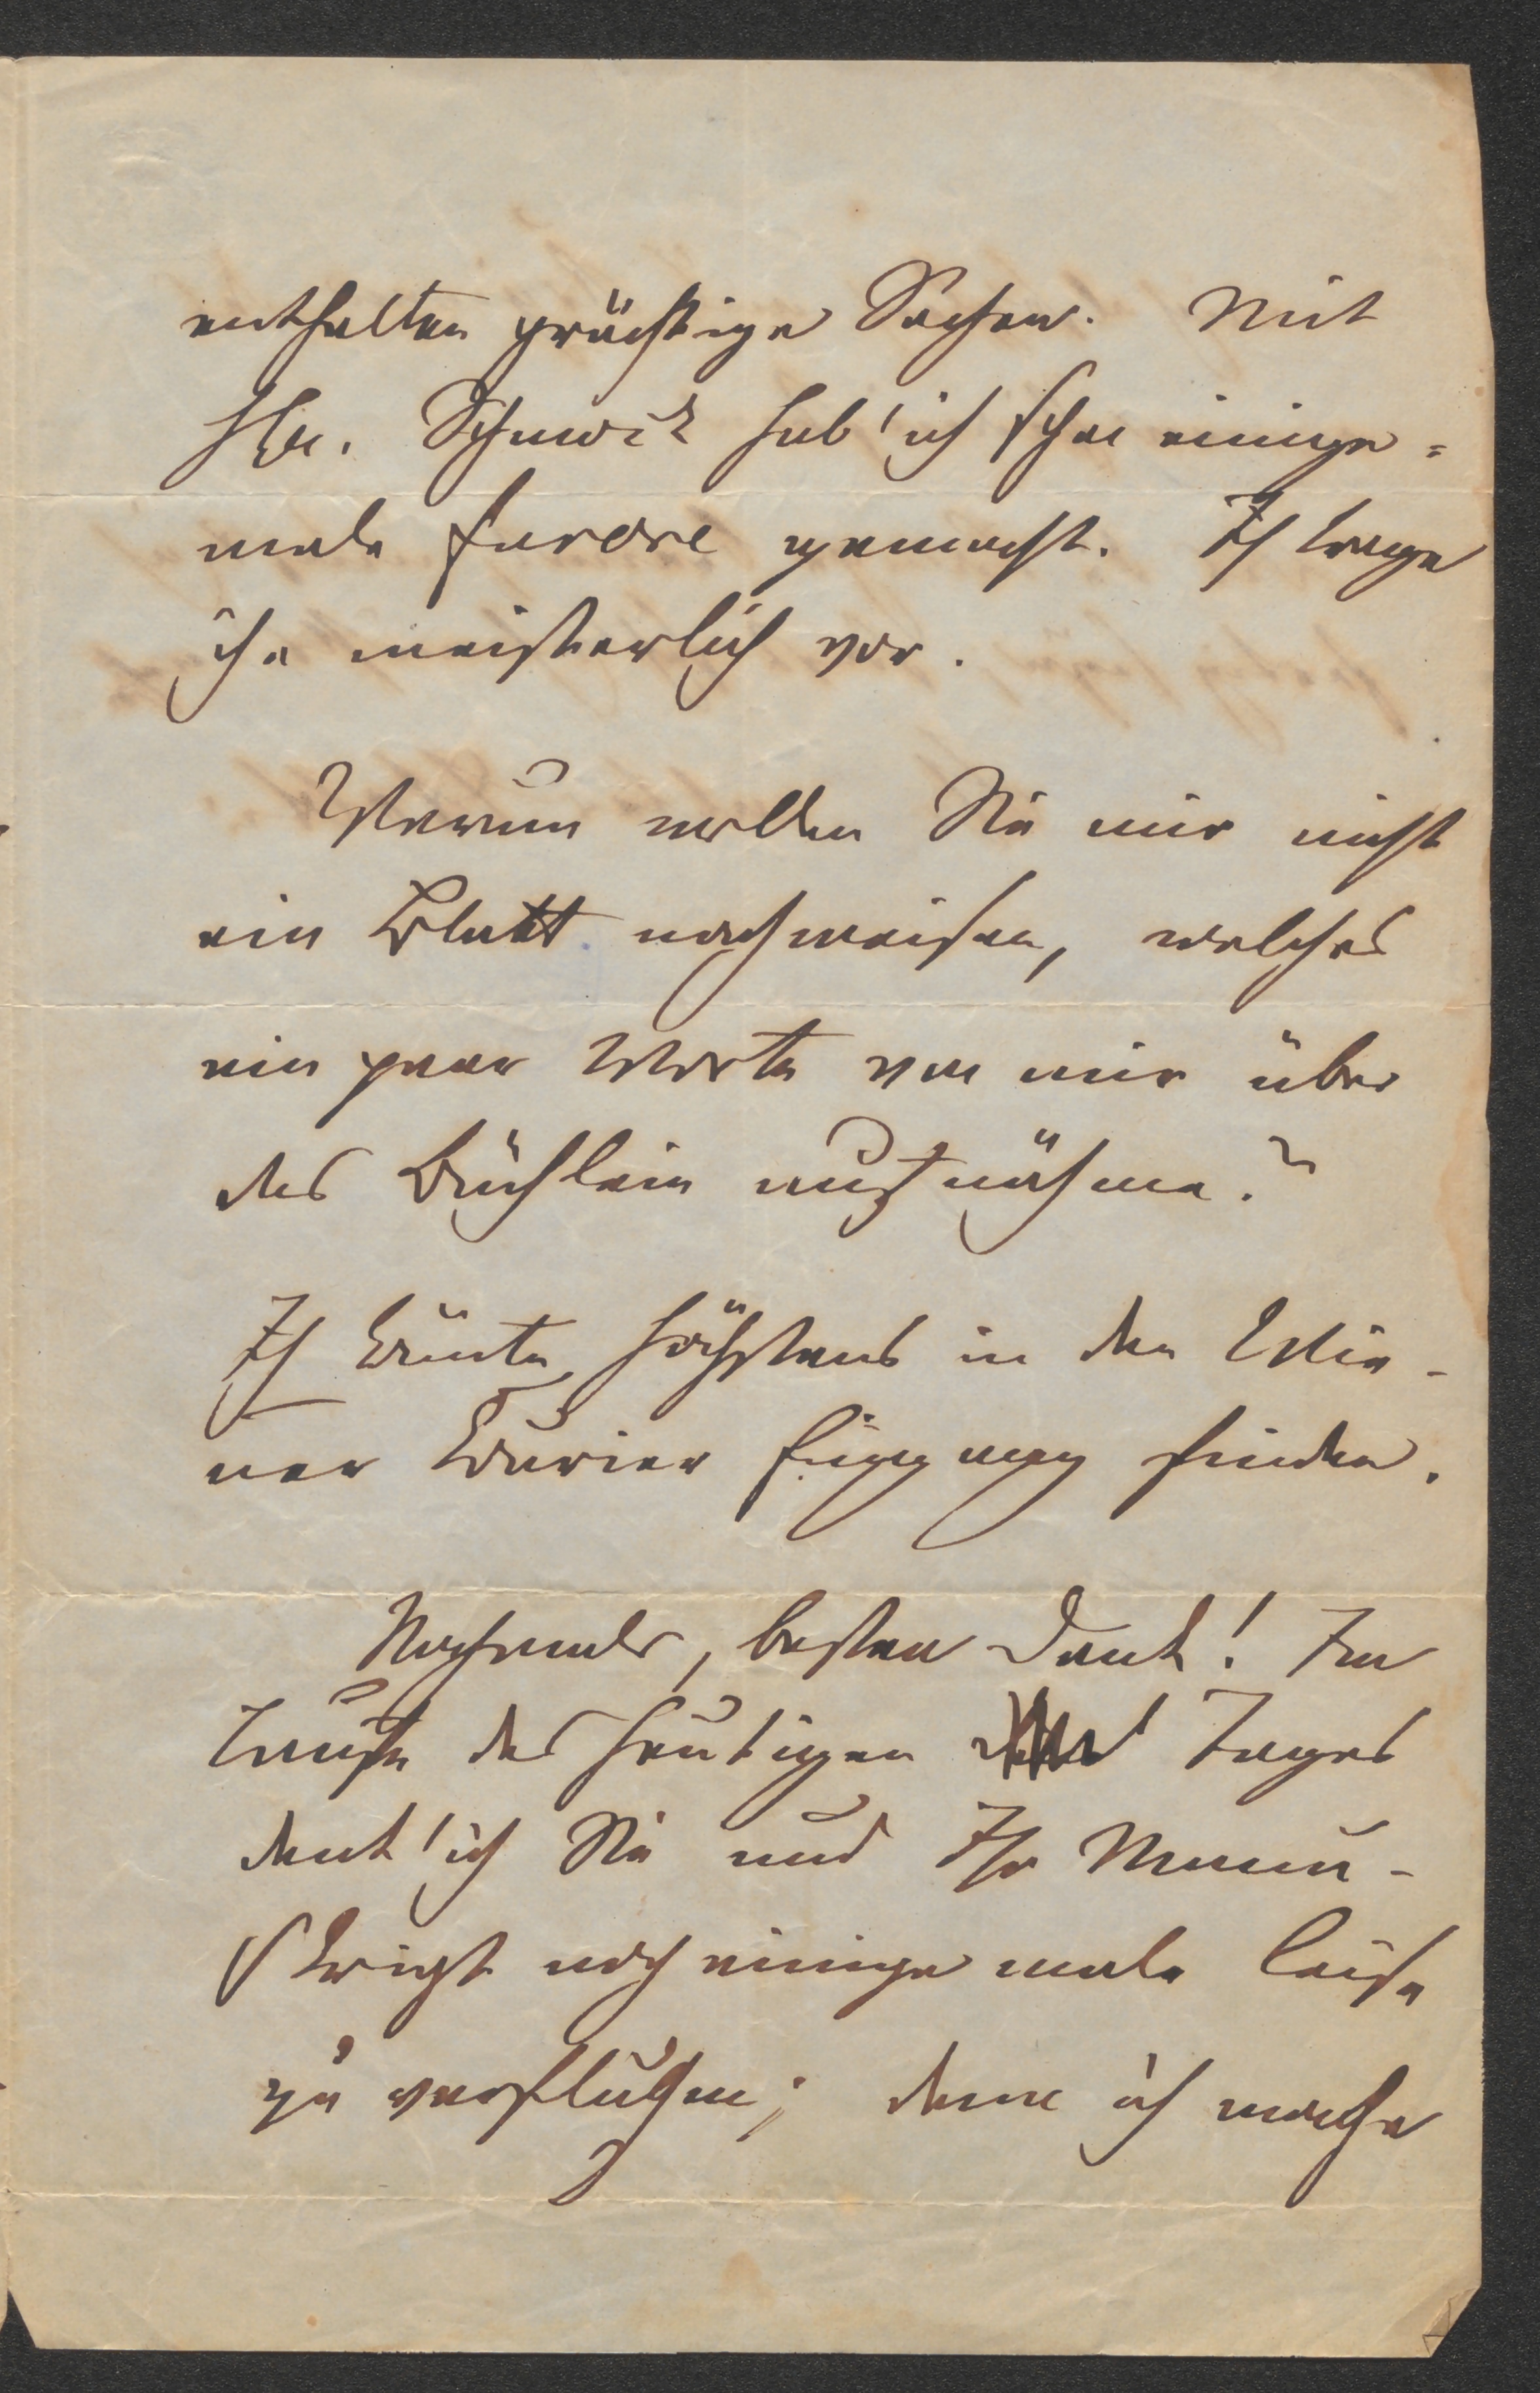 enthalten prächtige Sachen. Mit
Hrn. Schmock hab' ich schon einige=
male furore gemacht. Ich trage
ihn meisterlich vor.
Warum wollen Sie mir nicht
ein Blatt nachweisen, welches
ein paar Worte von mir über
das Büchlein aufnähme?
Ich könnte höchstens in den Wie-
ner Kurier Eingang finden.
Nochmals, besten Dank! Im
Laufe des heutigen Tages
denk' ich Sie und Ihr Manu-
skript noch einige male leise
zu verfluchen; denn ich mache